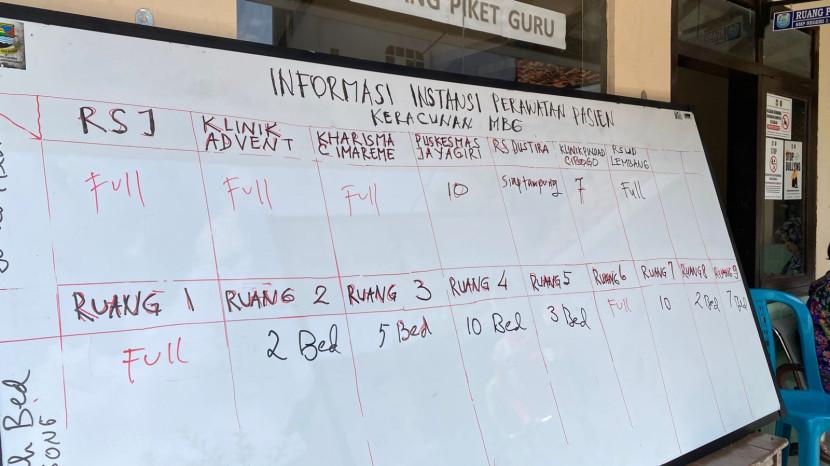 PIKET GURU
RUANG
INFORMASI INSTANSI PERAWATAN PASIEN
KERACUNAN MBG
RSJ
KLINIK
ADVENT
KHARISMA
CIMAREME
PUSKESMAS
JAYAGIRI
RS DUSTIRA
KLINIK PINDAD
CIBOGO
RSUD
LEMBANG
Full
Full
Full
10
Siap tampung
7
Full
RUANG 1
RUANG 2
RUANG 3
RUANG 4
RUANG 5
RUANG 6
RUANG 7
RUANG 8
RUANG 9
Full
2 Bed
5 Bed
10 Bed
3 Bed
Full
10
2 Bed
7 Bed
Bed
STOP
BULLYING